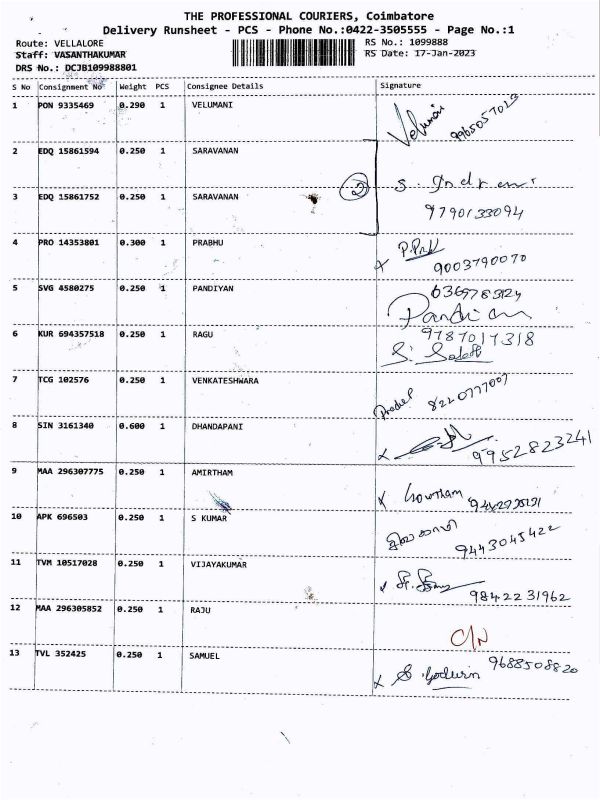 THE PROFESSIONAL COURIERS, Coimbatore
Delivery Runsheet - PCS - Phone No.:0422-3505555 - Page No.:1
Route: VELLALORE RS No.: 1099888
Staff: VASANTHAKUMAR RS Date: 17-Jan-2023
DRS No.: DCJB109988801
S No Consignment No Weight PCS Consignee Details Signature
1 PON 9335469 0.290 1 VELUMANI Velumani 9965057023
2 EDQ 15861594 0.250 1 SARAVANAN
3 EDQ 15861752 0.250 1 SARAVANAN 2 S. 9790133094
4 PRO 14353801 0.300 1 PRABHU x 9003790070
5 SVG 4580275 0.250 1 PANDIYAN Pandian
6 KUR 694357518 0.250 1 RAGU 9787017318
7 TCG 102576 0.250 1 VENKATESHWARA 8220777007
8 SIN 3161340 0.600 1 DHANDAPANI x 9952823241
9 MAA 296307775 0.250 1 AMIRTHAM x Gowtham
10 APK 696503 0.250 1 S KUMAR 9443045422
11 TVM 10517028 0.250 1 VIJAYAKUMAR 9842231962
12 MAA 296305852 0.250 1 RAJU C/N
13 TVL 352425 0.250 1 SAMUEL x S. Godwin 9688508820